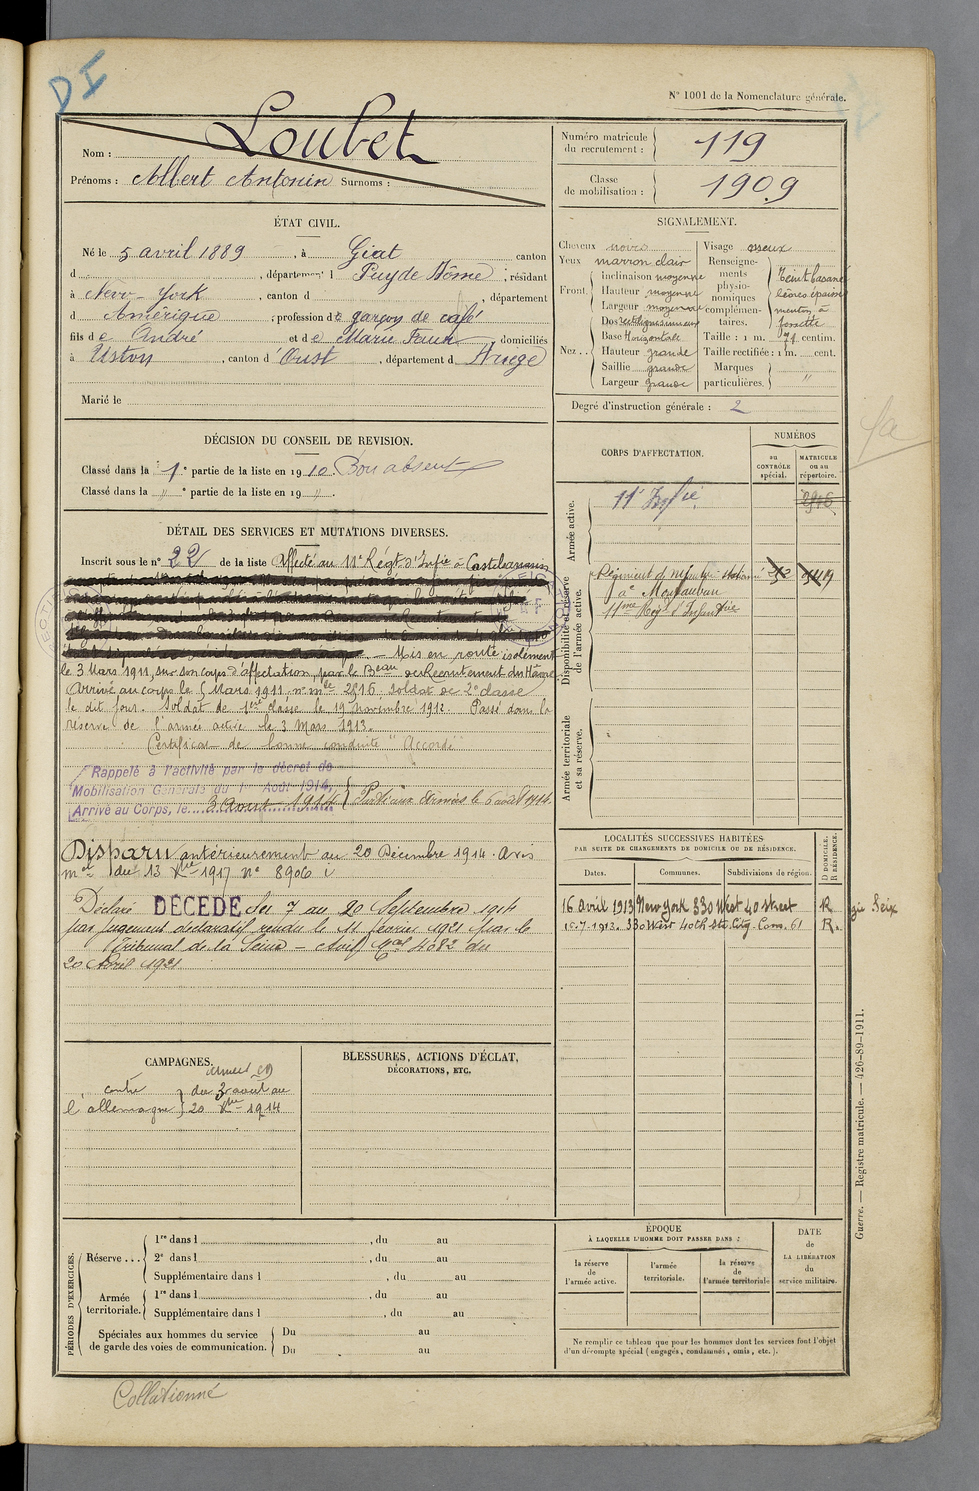 DI
N° 1001 de la Nomenclature générale.
Nom : Loubet
Prénoms : Albert Antonin Surnoms :
Numéro matricule du recrutement : 119
Classe de mobilisation : 1909
ÉTAT CIVIL.
Né le 5 avril 1889, à Giat canton
d , département d Puy de Dôme, résidant
à New-York, canton d , département
d Amérique, profession de garçon de café
fils de André et de Marie Faur domiciliés
à Ustou, canton d'Oust, département d Ariège
Marié le
SIGNALEMENT.
Cheveux noirs
Yeux marron clair
Front. inclinaison moyenne
Hauteur moyenne
Largeur moyenne
Nez .. Dos rectiligne sinueux
Base Horizontale
Hauteur grande
Saillie grande
Largeur grande
Visage osseux
Renseignements physionomiques complémentaires. Teint basané lèvres épaisses menton à fossette
Taille : 1 m. 71 centim.
Taille rectifiée : 1 m. cent.
Marques particulières. "
Degré d'instruction générale : 2
DÉCISION DU CONSEIL DE REVISION.
Classé dans la 1e partie de la liste en 1910 Bon absent
Classé dans la " e partie de la liste en 19 " .
DÉTAIL DES SERVICES ET MUTATIONS DIVERSES.
Inscrit sous le n° 22 de la liste Affecté au 11e Régt d'Infie à Castelsarrasin
Mis en route isolément
le 3 Mars 1911, sur son corps d'affectation, par le Beau de Recrutement du Hâvre
Arrivé au corps le 5 Mars 1911. n° mle 2816 soldat de 2e classe
le dit jour. Soldat de 1ère classe le 19 novembre 1912. Passé dans la
réserve de l'armée active le 3 Mars 1913.
Certificat de bonne conduite "Accordé"
Rappelé à l'activité par le décret de
Mobilisation Générale du 1er Août 1914,
Arrivé au Corps, le 3 Août 1914 Parti aux Armées le 6 août 1914.
Disparu antérieurement au 20 Décembre 1914. Avis
mel du 13 Xbre 1917 n° 8906
Déclaré DÉCÉDÉ du 7 au 20 Septembre 1914
par jugement déclaratif rendu le 11 février 1921 par le
Tribunal de la Seine - Avis 4082 du
20 Avril 1921
CORPS D'AFFECTATION.
NUMÉROS
au CONTRÔLE spécial.
MATRICULE ou au répertoire.
Armée active.
11e Infie. 2816
Disponibilité et réserve de l'armée active.
Régiment d'infanterie stationné
à Montauban
11ème Reg. d'Infanterie
Armée territoriale et sa réserve.
LOCALITÉS SUCCESSIVES HABITÉES
PAR SUITE DE CHANGEMENTS DE DOMICILE OU DE RÉSIDENCE.
Dates. Communes. Subdivisions de région. D DOMICILE. R RÉSIDENCE.
16 avril 1913 New york 330 West 40 street R
15.7.1913. 330 West 40th Str. City. Cons. 61 R.
Seix
CAMPAGNES.
contre l'allemagne du 3 août au 20 Xbre 1914
BLESSURES, ACTIONS D'ÉCLAT,
DÉCORATIONS, ETC.
PÉRIODES D'EXERCICES.
Réserve ... 1re dans l , du au
2e dans l , du au
Supplémentaire dans l , du au
Armée territoriale. 1re dans l , du au
Supplémentaire dans l , du au
Spéciales aux hommes du service de garde des voies de communication. Du au
Du au
ÉPOQUE
À LAQUELLE L'HOMME DOIT PASSER DANS :
la réserve de l'armée active.
l'armée territoriale.
la réserve de l'armée territoriale
DATE de LA LIBÉRATION du service militaire.
Ne remplir ce tableau que pour les hommes dont les services font l'objet
d'un décompte spécial (engagés, condamnés, omis, etc.).
Guerre. — Registre matricule. — 426-89-1911.
Collationné